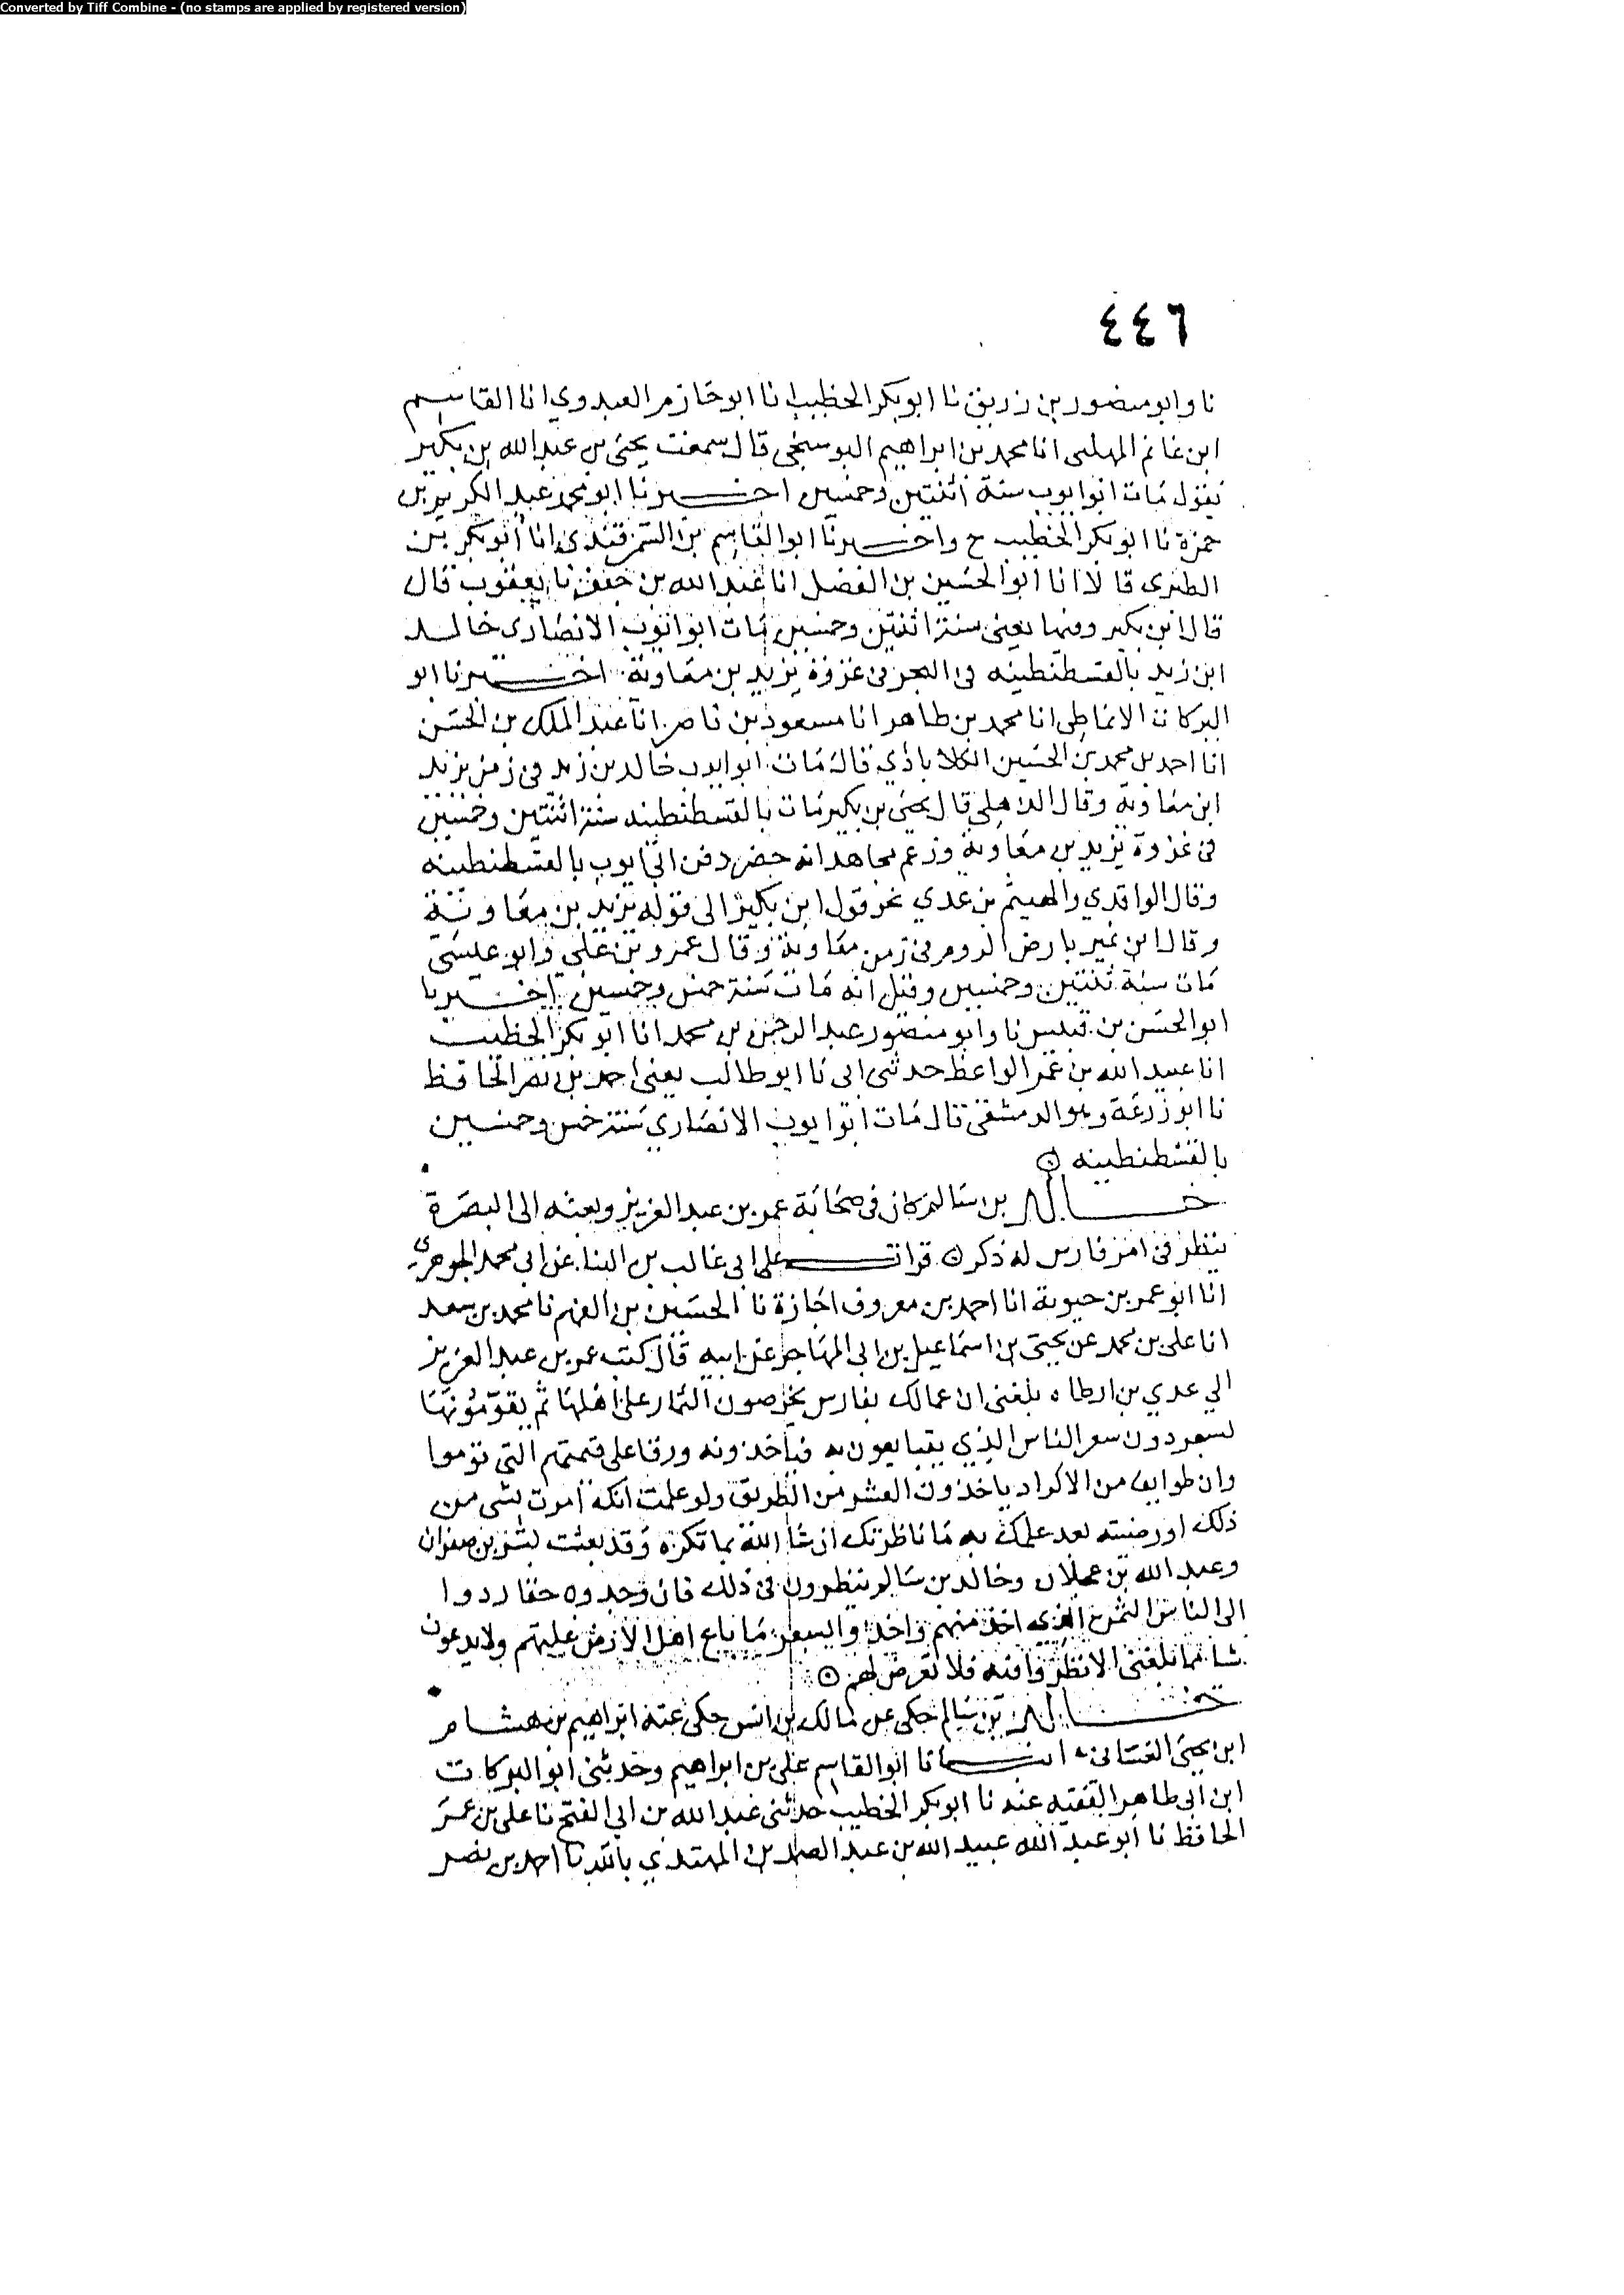 Converted by Tiff Combine - (no stamps are applied by registered version)
٤٤٦
نا وابو منصور بن زريق نا ابو بكر الخطيب انا ابو حازم العبدوي انا القاسم
ابن غانم المهلبى انا محمد بن ابراهيم البوسنجى قال سمعت يحيى بن عبد الله بن بكير
يقول مات ابو ايوب سنة اثنتين وخمسين اخبرنا ابو محمد عبد الكريم بن
حمزة نا ابو بكر الخطيب ح واخبرنا ابو القاسم بن السمرقندى انا ابو بكر بن
الطبرى قالا انا ابو الحسين بن الفضل انا عبد الله بن جعفر نا يعقوب قال
قال ابن بكير وفيها يعنى سنة اثنتين وخمسين مات ابو ايوب الانصارى خالد
ابن زيد بالقسطنطينه فى البحر فى غزوة يزيد بن معاوية اخبرنا ابو
البركات الانماطى انا محمد بن طاهر انا مسعود بن ناصر انا عبد الملك بن الحسن
انا احمد بن محمد بن الحسين الكلاباذي قال مات ابو ايوب خالد بن زيد فى زمن يزيد
ابن معاوية وقال الذهلى قال يحيى بن بكير مات بالقسطنطينه سنة اثنتين وخمسين
فى غزوة يزيد بن معاوية وزعم مجاهد انه حضر دفن ابى ايوب بالقسطنطينه
وقال الواقدي والهيثم بن عدي نحو قول ابن بكير الى قوله يزيد بن معاوية
وقال ابن نمير بارض الروم فى زمن معاوية وقال عمرو بن على وابو عيسى
مات سنة ثنتين وخمسين وقيل انه مات سنة خمس وخمسين اخبرنا
ابو الحسن بن قبيس نا وابو منصور عبد الرحمن بن محمد انا ابو بكر الخطيب
انا عبيد الله بن عمر الواعظ حدثنى ابى نا ابو طالب يعنى احمد بن نصر الحافظ
نا ابو زرعة وهو الدمشقى قال مات ابو ايوب الانصاري سنة خمس وخمسين
بالقسطنطينه
خالد بن سالم كان فى صحابة عمر بن عبد العزيز وبعثه الى البصرة
ينظر فى امر فارس له ذكر قرات على ابى غالب بن البنا عن ابى محمد الجوهري
انا ابو عمر بن حيوية انا احمد بن معروف اجازة نا الحسين بن الفهم نا محمد بن سعد
انا على بن محمد عن يحيى بن اسماعيل بن ابى المهاجر عن ابيه قال كتب عمر بن عبد العزيز
الي عدي بن ارطاه بلغنى ان عمالك بفارس يخرصون الثمار على اهلها ثم يقومونها
بسعر دون سعر الناس الذي يتبايعون به فياخذونه ورقا على قيمتهم التى قوموا
وان طوايف من الاكراد ياخذون العشر من الطريق ولو علمت انك امرت بشى من
ذلك او رضيته بعد علمك به ما ناظرتك ان شا الله بما تكره وقد بعثت بشر بن صفوان
وعبد الله بن عجلان وخالد بن سالم ينظرون فى ذلك فان وجدوه حقا ردوا
الى الناس الثمن الذى اخذ منهم واخذوا بسعر ما باع اهل الارض عليهم ولا يدعون
شيا مما بلغنى الا نظروا فيه فلا تعرض لهم
خالد بن سالم حكى عن مالك بن انس حكى عنه ابراهيم بن هشام
ابن يحيى الغسانى انبانا ابو القاسم على بن ابراهيم وحدثنى ابو البركات
ابن ابى طاهر الفقيه عنه نا ابو بكر الخطيب حدثنى عبد الله بن ابى الفتح نا على بن عمر
الحافظ نا ابو عبد الله عبيد الله بن عبد الصمد بن المهتدي بالله نا احمد بن نصر